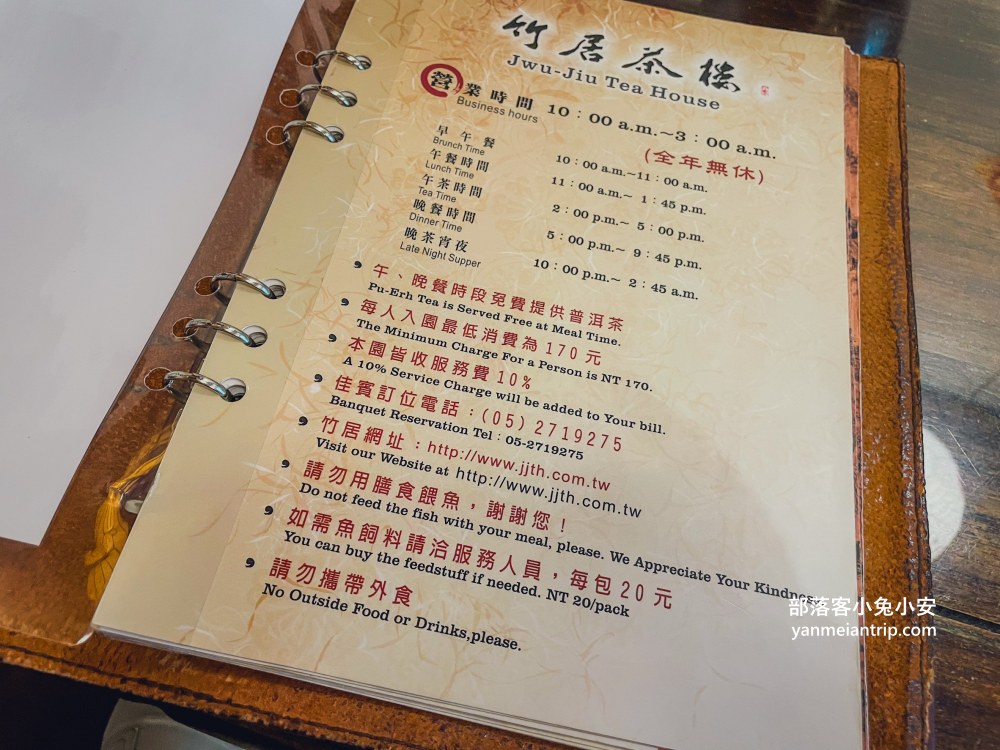 竹居茶樓
Jwu-Jiu Tea House
營業時間 10：00 a.m.~3：00 a.m.
Business hours
(全年無休)
早午餐 10：00 a.m.~11：00 a.m.
Brunch Time
午餐時間 11：00 a.m.~ 1：45 p.m.
Lunch Time
午茶時間 2：00 p.m.~ 5：00 p.m.
Tea Time
晚餐時間 5：00 p.m.~ 9：45 p.m.
Dinner Time
晚茶宵夜 10：00 p.m.~ 2：45 a.m.
Late Night Supper
午、晚餐時段免費提供普洱茶
Pu-Erh Tea is Served Free at Meal Time.
每人入園最低消費為170元
The Minimum Charge For a Person is NT 170.
本園皆收服務費10%
A 10% Service Charge will be added to Your bill.
佳賓訂位電話：(05)2719275
Banquet Reservation Tel：05-2719275
竹居網址：http://www.jjth.com.tw
Visit our Website at http://www.jjth.com.tw
請勿用膳食餵魚，謝謝您！
Do not feed the fish with your meal, please. We Appreciate Your Kindness.
如需魚飼料請洽服務人員，每包20元
You can buy the feedstuff if needed. NT 20/pack
請勿攜帶外食
No Outside Food or Drinks,please.
部落客小兔小安
yanmeiantrip.com